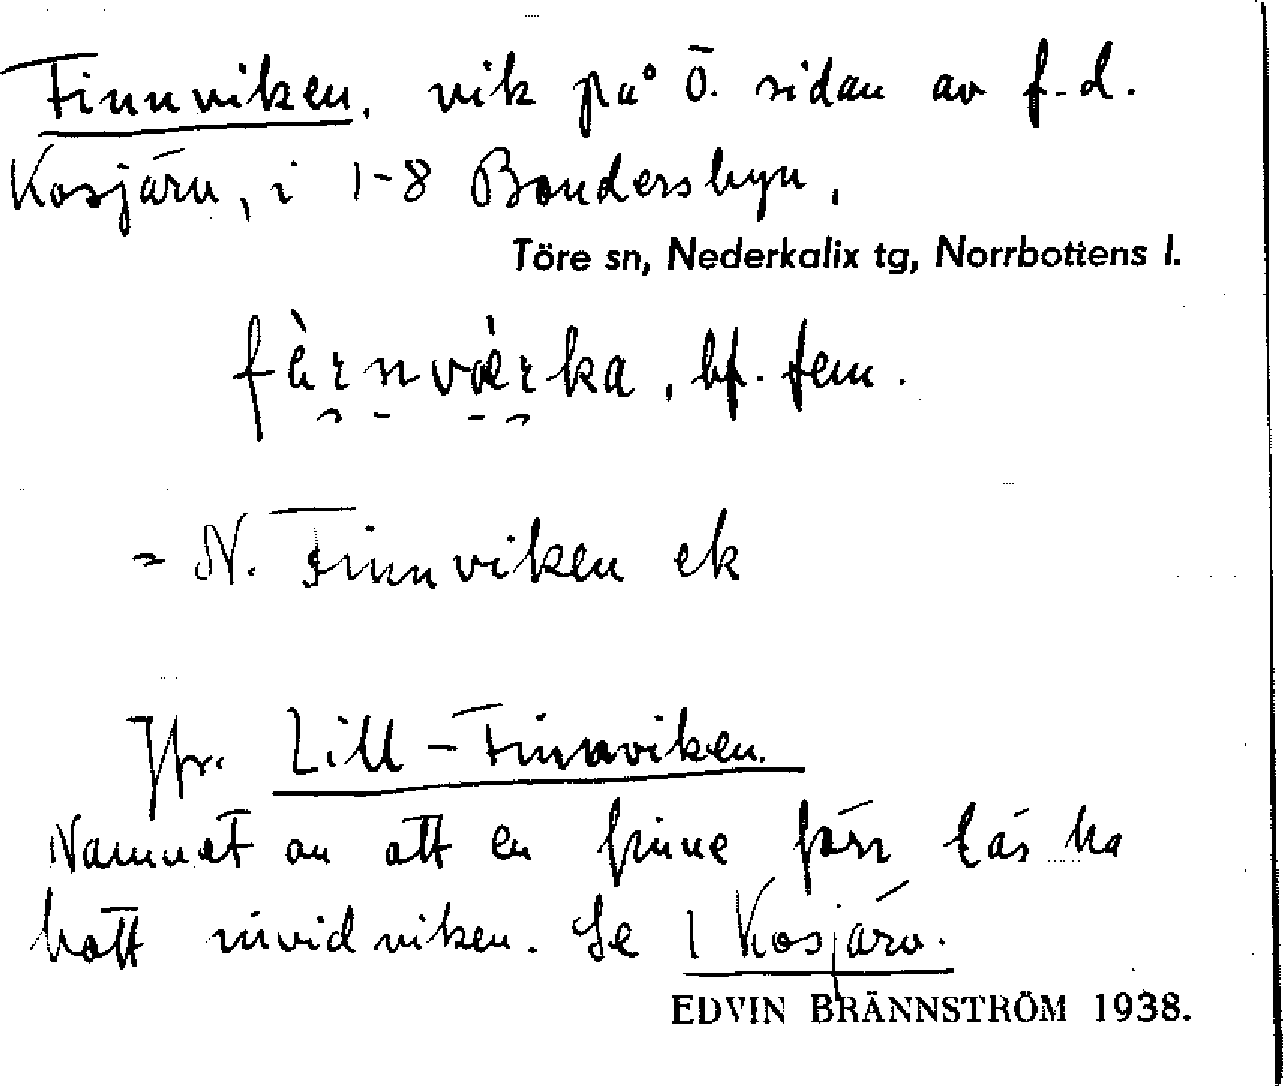 Finnviken, vik på ö. sidan av f.d.
Kosjärv, i 1-8 Bondersbyn,
Töre sn, Nederkalix tg, Norrbottens l.
bf. fem.
= N. Finnviken ek
Jfr. Lill-Finnviken.
Namnet av att en finne förr läs ha
bott invid viken. Se 1 Kosjärv.
EDVIN BRÄNNSTRÖM 1938.